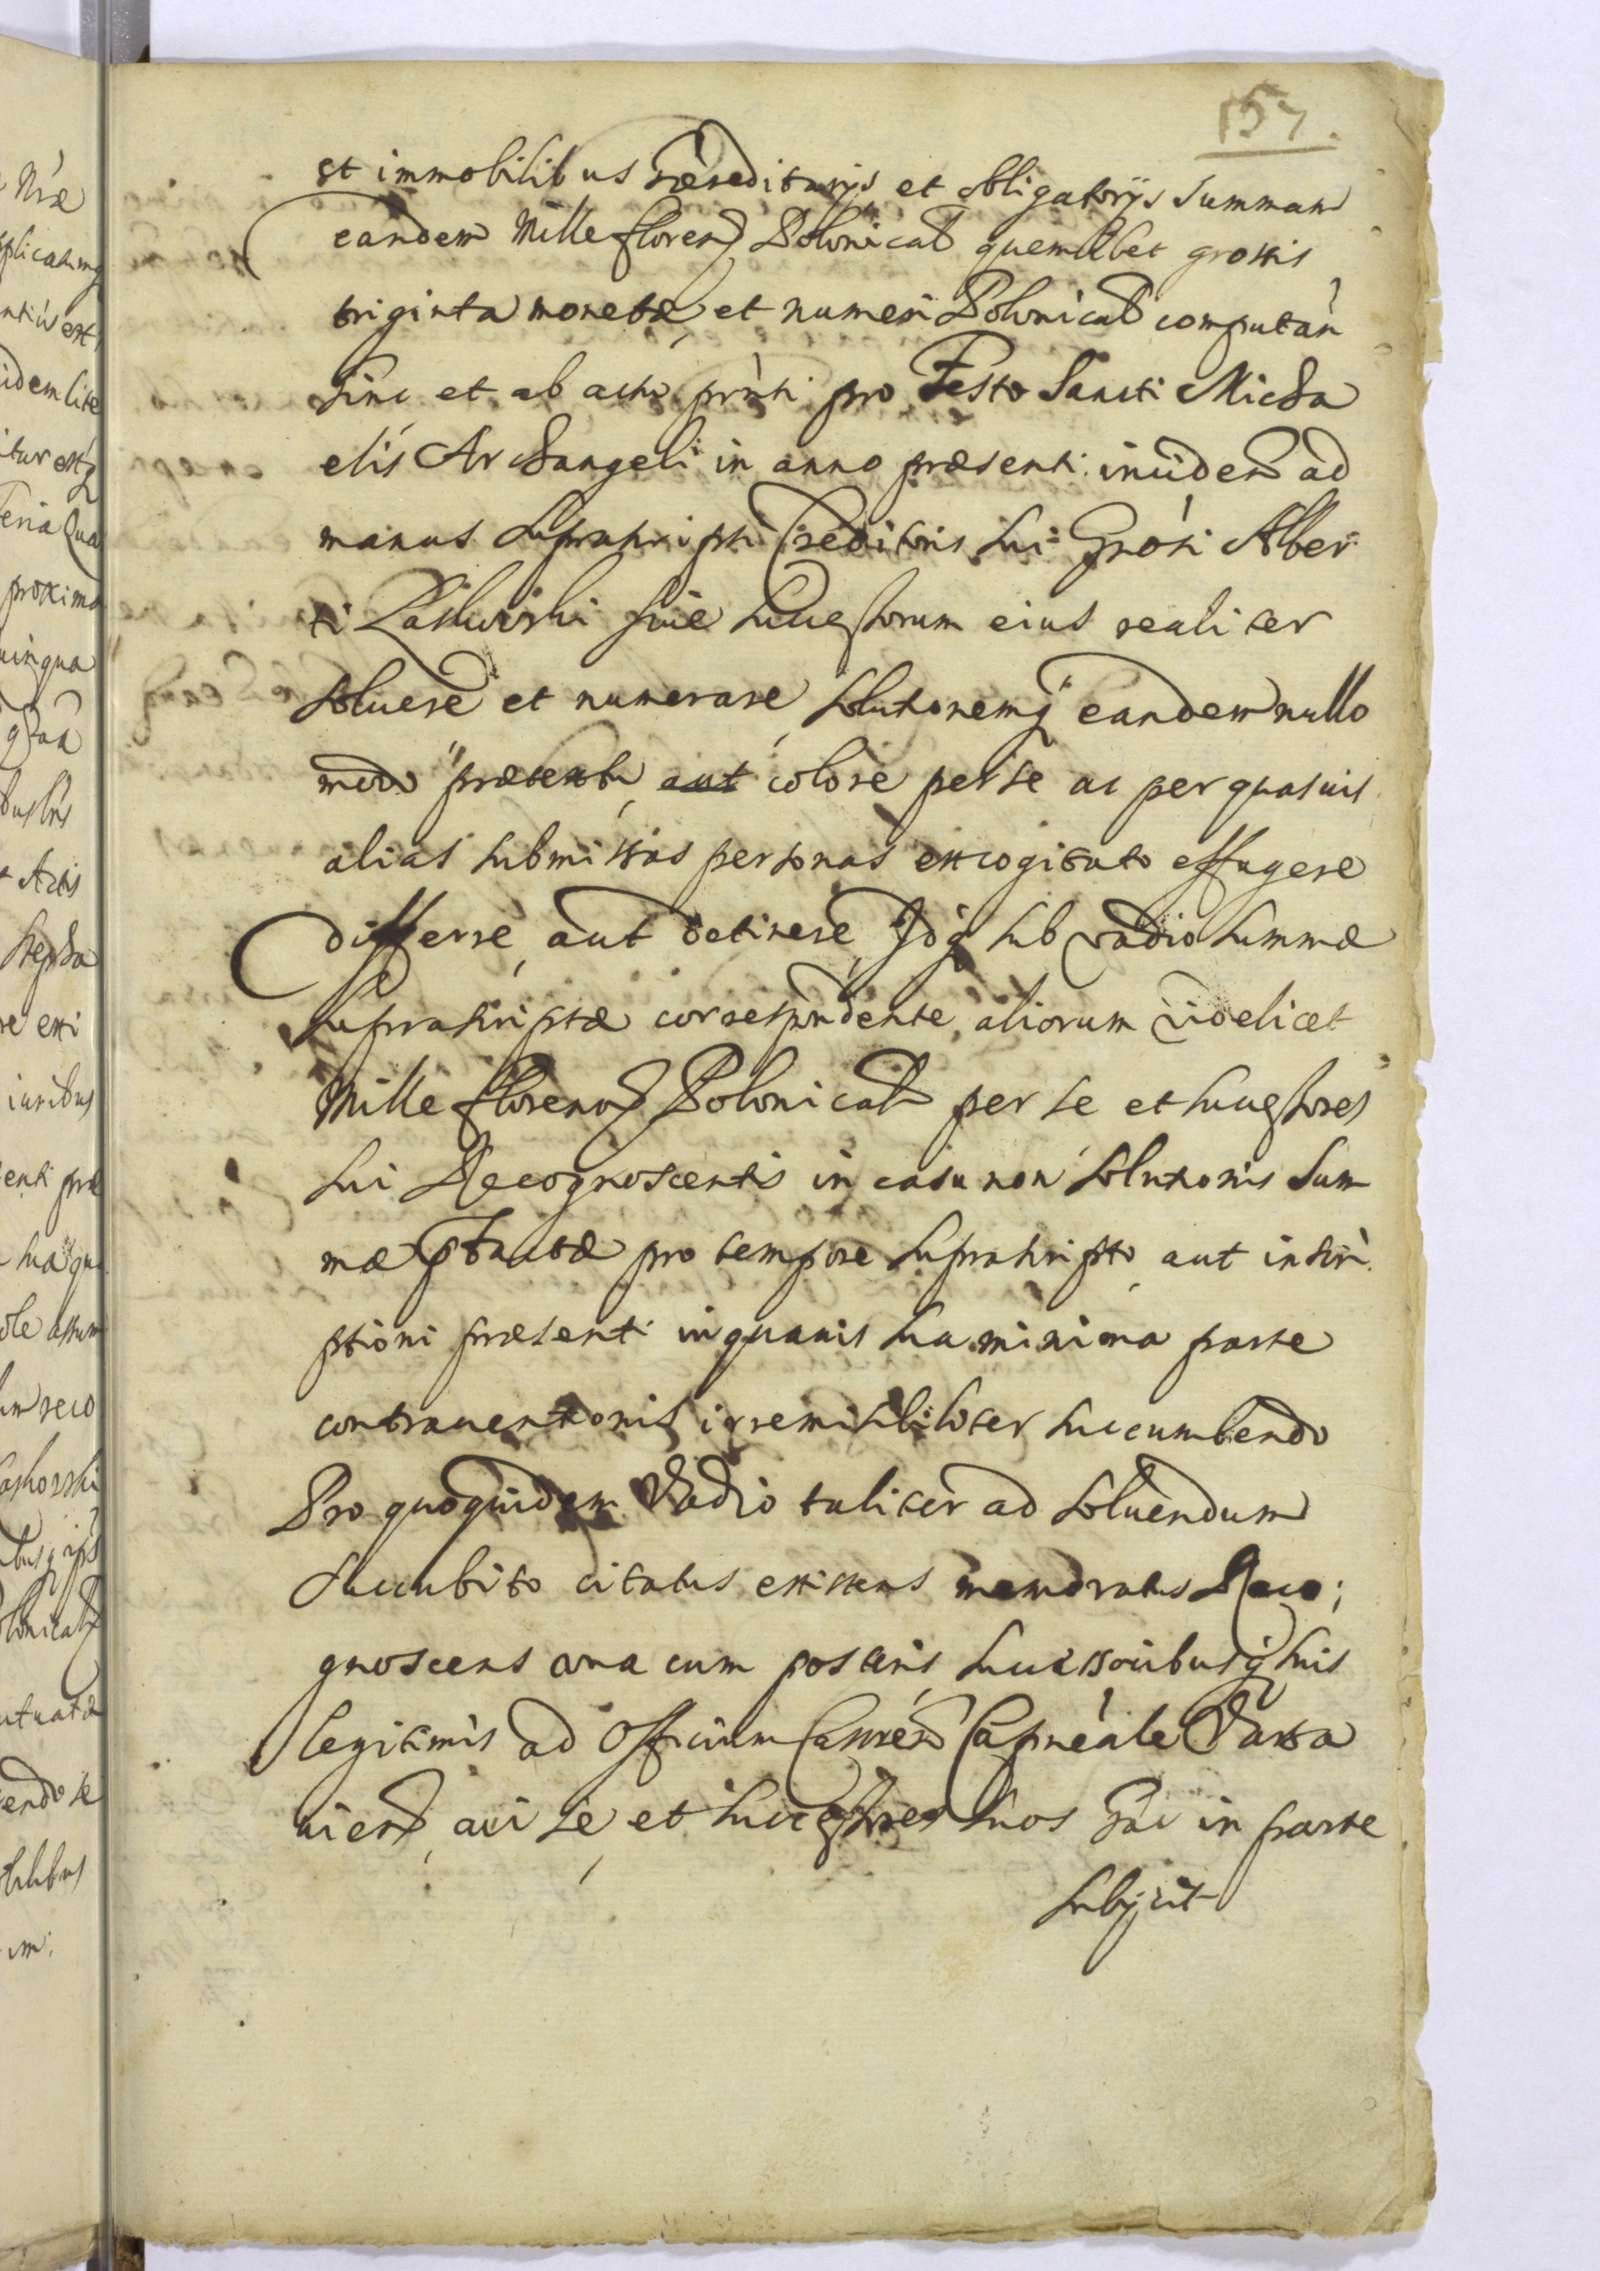 157.
et immobilibus hæreditarÿs et obligatorÿs summam
eandem Mille floren Polonical quemlibet grossis
triginta monetæ et numeri Polonical computan
hinc et ab actu prnti pro Festo Sancti Micha
elis Archangeli in anno præsenti inciden ad
manus suprascripti Creditoris sui Grosi Alber
ti siue successorum eius realiter
soluere et numerare solutionemq eandem nullo
modo prætextu aut colore per se ac per quasuis
alias submissas personas excogitato effugere
differre aut detinere Idq sub vadio summæ
suprascriptæ correspondente aliorum videlicet
Mille floreno Polonical per se et successores
sui Recognoscentis in casu non solutionis sum
mæ pro tempore suprascripto aut inscri
ptioni præsenti inquauis sua minima parte
contrauentionis irremissibiliter succumbendo
Pro quoquidem Vadio taliter ad soluendum
succubito citatus existens memoratus Reco;
gnoscens vna cum posteris successoribusq suis
legitimis ad Officium Castren Capneale Varsa
uien cui se et successores suos hac in parte
subÿcit